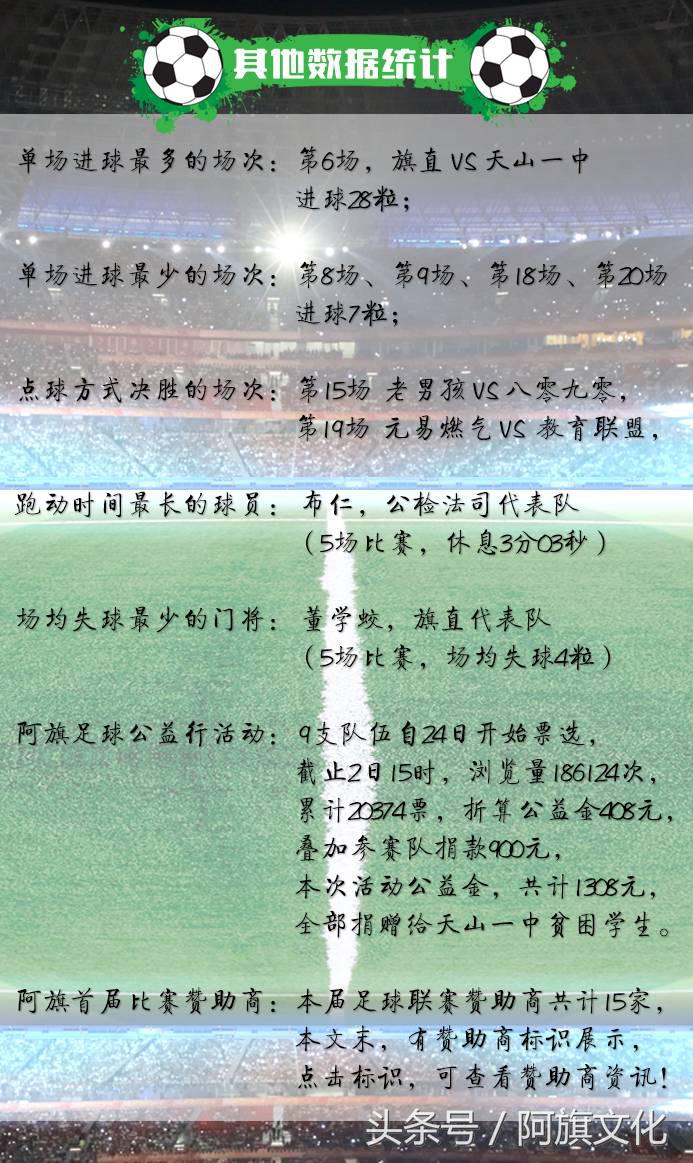 其他数据统计
单场进球最多的场次：第6场，旗直 VS 天山一中
进球28粒；
单场进球最少的场次：第8场、第9场、第18场、第20场
进球7粒；
点球方式决胜的场次：第15场 老男孩 VS 八零九零，
第19场 元易燃气 VS 教育联盟，
跑动时间最长的球员：布仁，公检法司代表队
（5场比赛，休息3分03秒）
场均失球最少的门将：董学蛟，旗直代表队
（5场比赛，场均失球4粒）
阿旗足球公益行活动：9支队伍自24日开始票选，
截止2日15时，浏览量186124次，
累计20374票，折算公益金408元，
叠加参赛队捐款900元，
本次活动公益金，共计1308元，
全部捐赠给天山一中贫困学生。
阿旗首届比赛赞助商：本届足球联赛赞助商共计15家，
本文末，有赞助商标识展示，
点击标识，可查看赞助商资讯！
头条号 / 阿旗文化